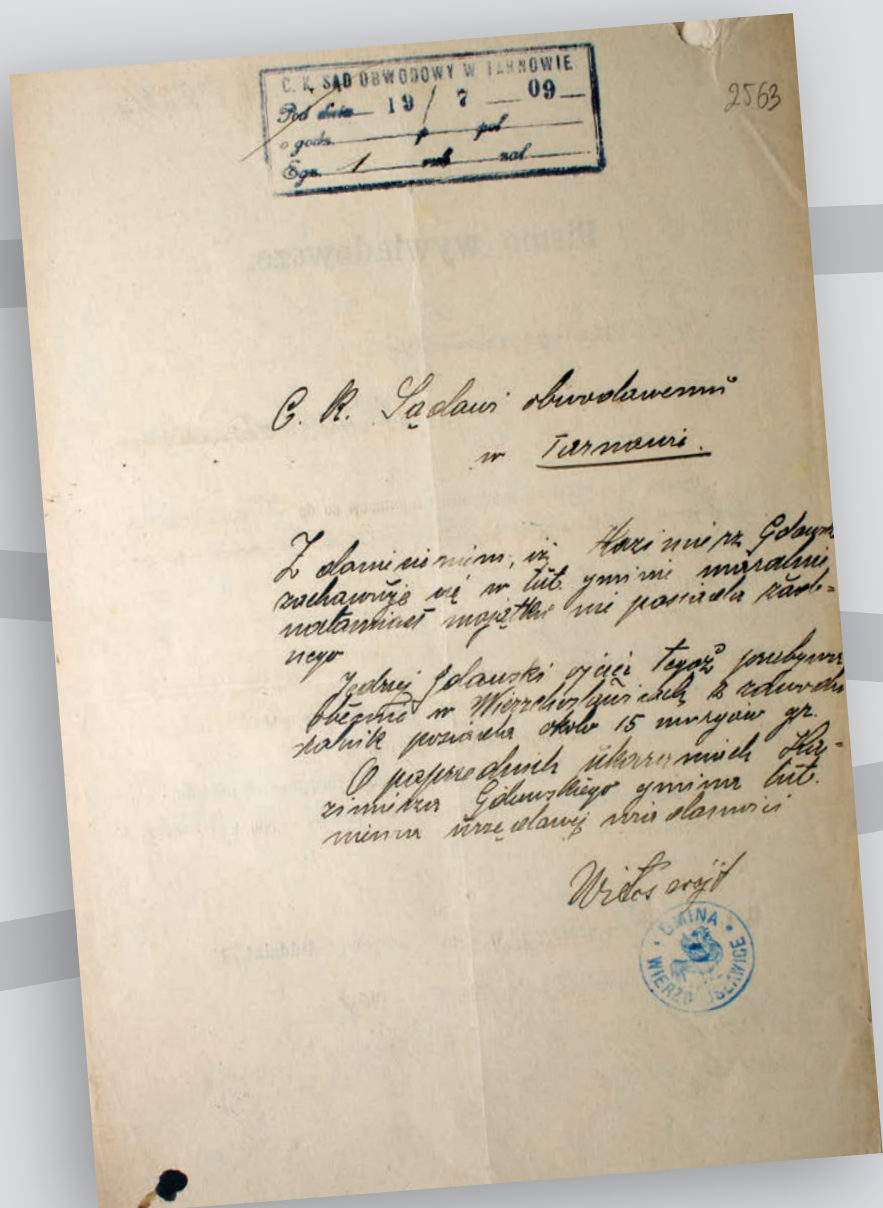 C. K. SĄD OBWODOWY W TARNOWIE
Pod dniem 19/7 09
o godz. p pol
Egz. 1 rub zal
2563
C. K. Sądowi obwodowemu
w Tarnowie.
Z doniesieniem, iż Kazimierz Gdowski
zachowuje się w tut. gminie moralnie
natomiast majątku nie posiada żad-
nego
Jędrzej Gdowski ojciec tegoż przebywa
obecnie w Wierzchosławicach z zawodu
rolnik posiada około 15 morgów gr.
O poprzednich ukaraniach Ka-
zimierza Gdowskiego gmina tut.
niema urzędowej wiadomości
Witos wójt
GMINA WIERZCHOSŁAWICE